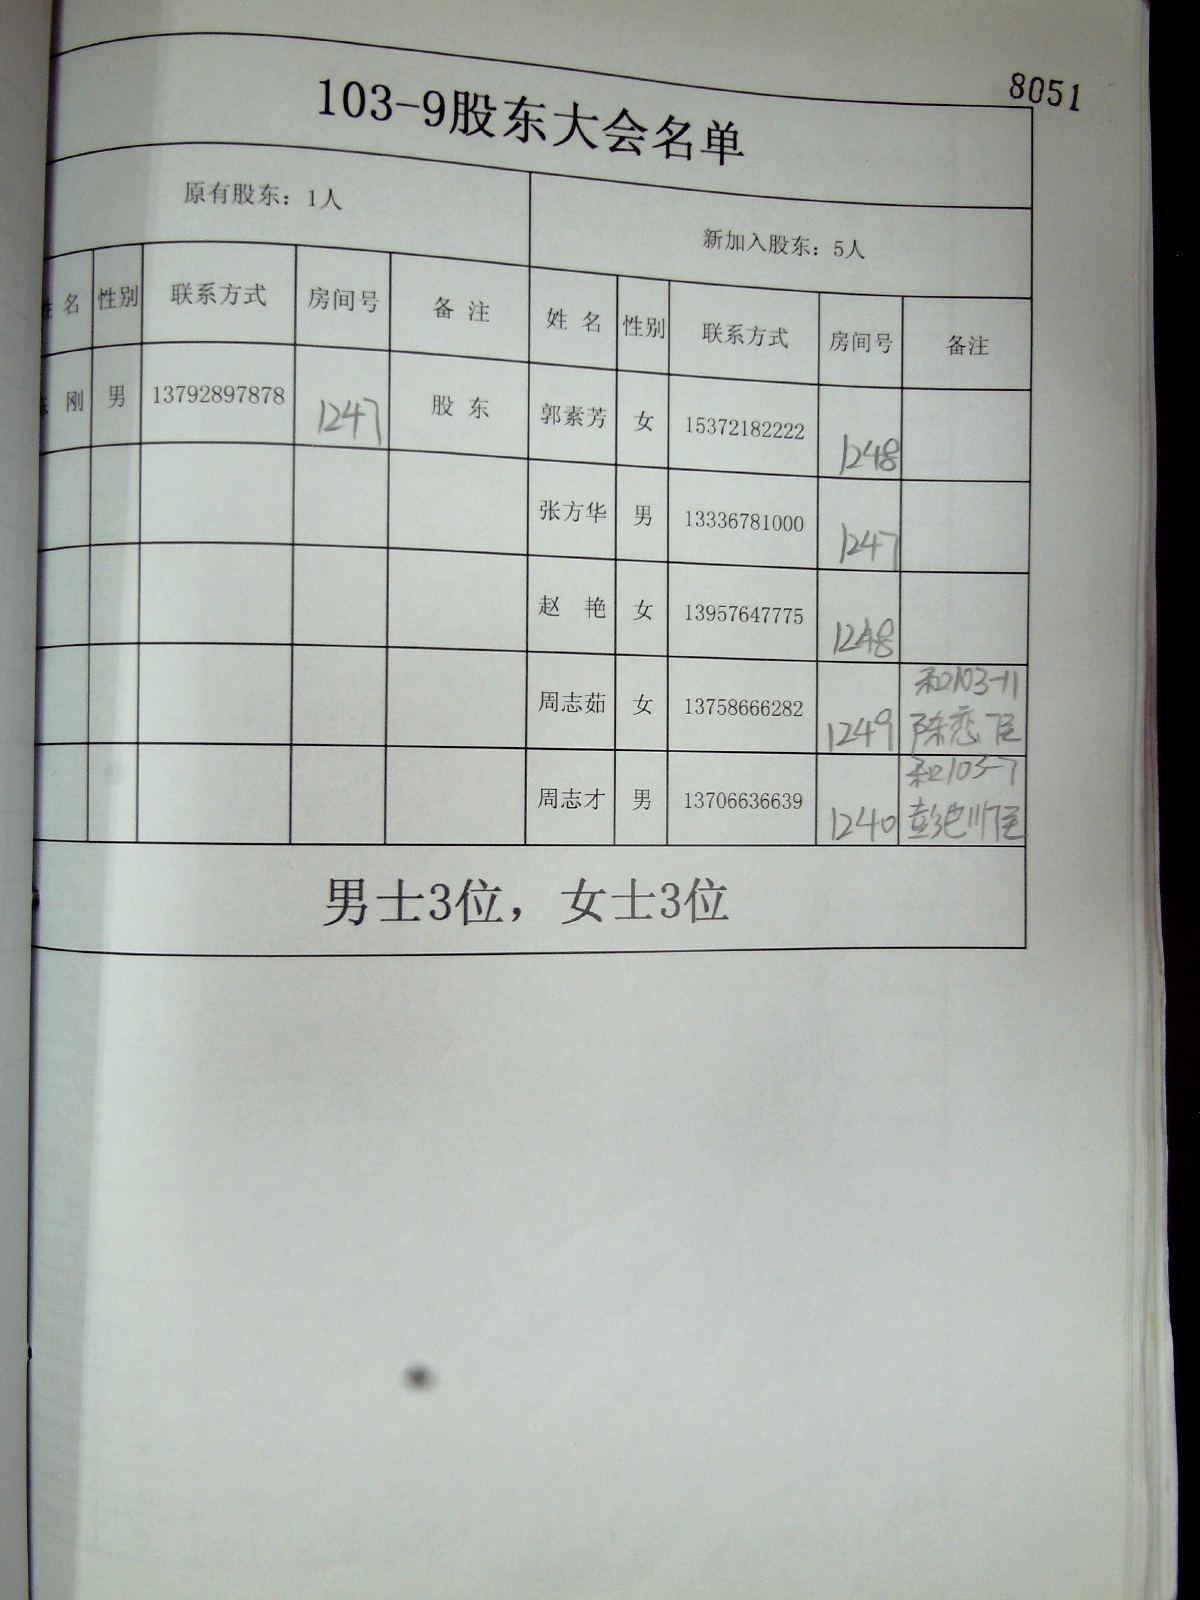 8051
103-9股东大会名单
原有股东：1人 新加入股东：5人
名 性别 联系方式 房间号 备 注 姓 名 性别 联系方式 房间号 备注
刚 男 13792897878 1247 股 东 郭素芳 女 15372182222 1248
张方华 男 13336781000 1247
赵 艳 女 13957647775 1248
周志茹 女 13758666282 1249 和103-11
陈恋 住
周志才 男 13706636639 1240 和103-7
彭 川 住
男士3位，女士3位